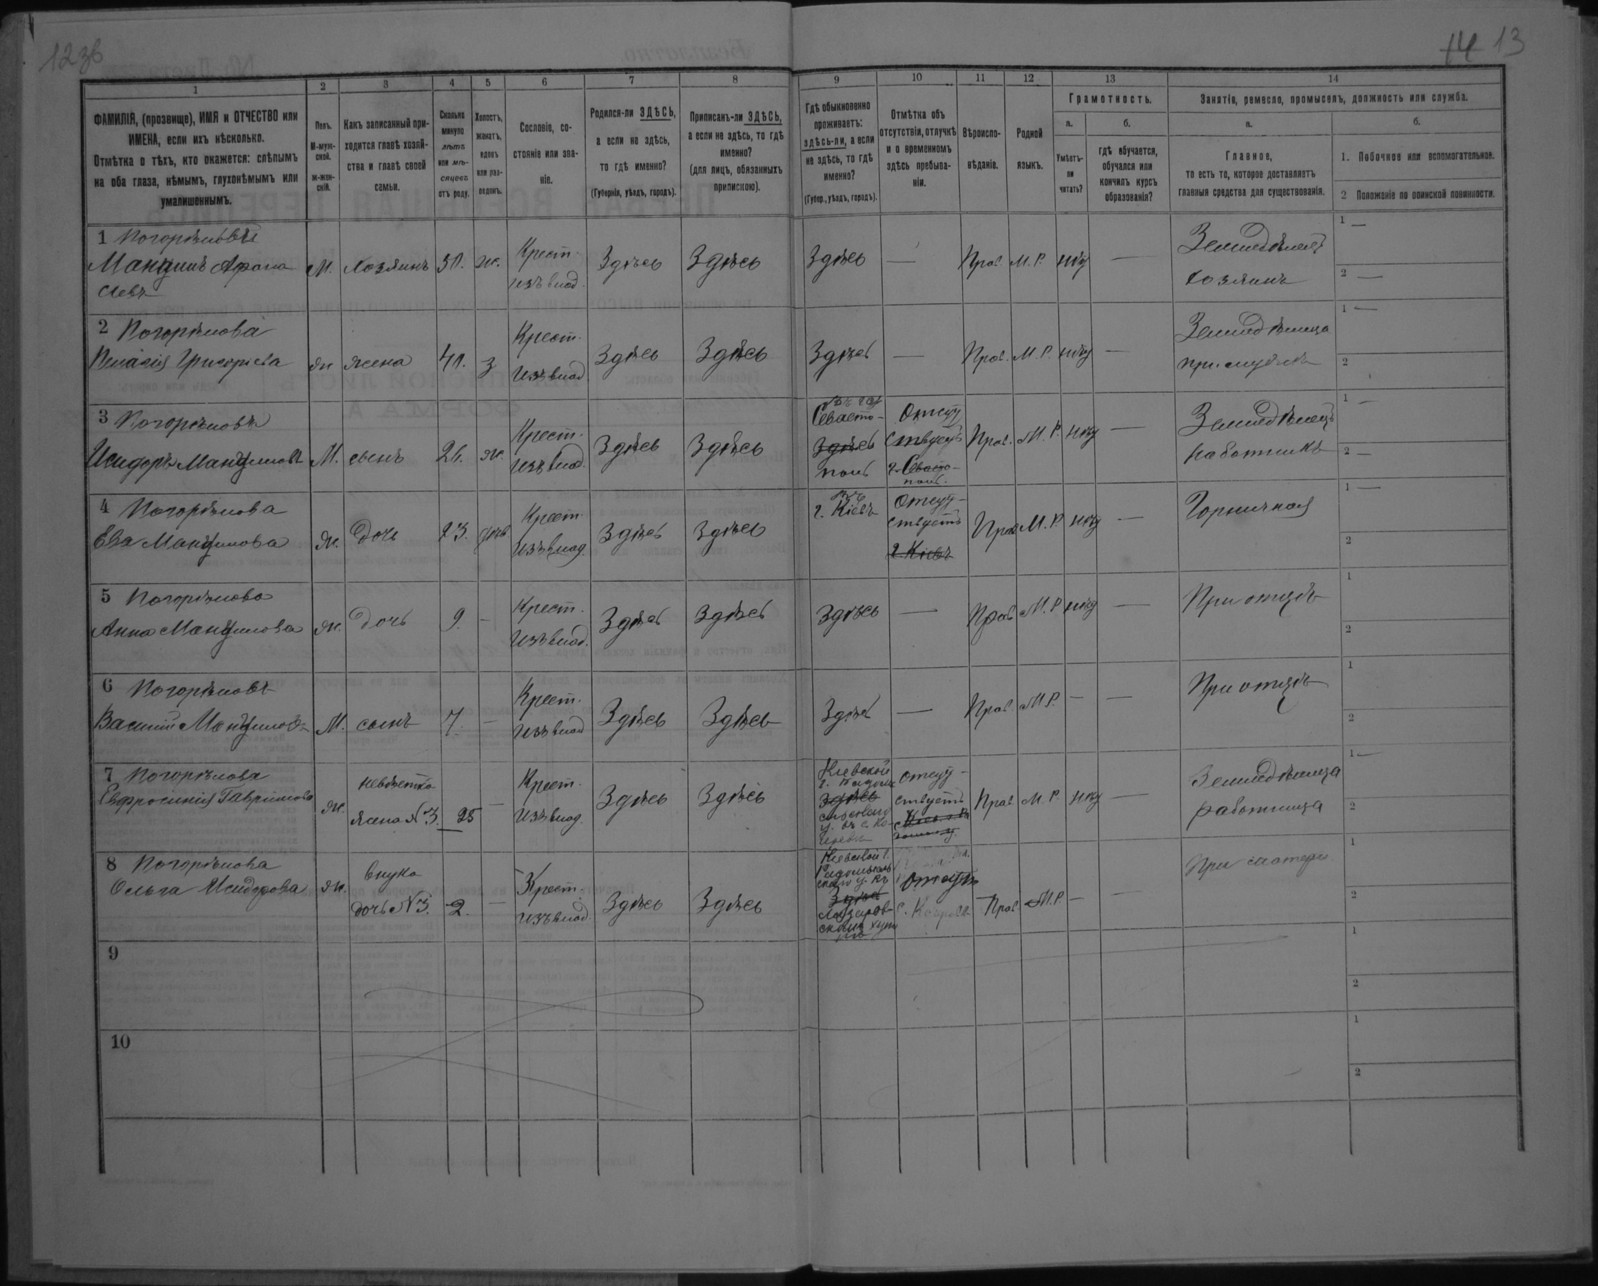 12зв
14 13
1 2 3 4 5 6 7 8 9 10 11 12 13 14
ФАМИЛІЯ, (прозвище), ИМЯ и ОТЧЕСТВО или
ИМЕНА, если ихъ нѣсколько.
Отмѣтка о тѣхъ, кто окажется: слѣпымъ
на оба глаза, нѣмымъ, глухонѣмымъ или
умалишеннымъ.
Полъ.
М-мужс-
ской.
Ж-жен-
скій.
Какъ записанный при-
ходится главѣ хозяй-
ства и главѣ своей
семьи.
Сколько
минуло
лѣтъ
или мѣ-
сяцевъ
отъ роду.
Холостъ,
женатъ,
вдовъ
или раз-
веденъ.
Сословіе, со-
стояніе или зва-
ніе.
Родился-ли ЗДѢСЬ,
а если не здѣсь,
то гдѣ именно?
(Губернія, уѣздъ, городъ).
Приписанъ-ли ЗДѢСЬ,
а если не здѣсь, то гдѣ
именно?
(для лицъ, обязанныхъ
припискою).
Гдѣ обыкновенно
проживаетъ:
здѣсь-ли, а если
не здѣсь, то гдѣ
именно?
(Губер., уѣздъ, городъ).
Отмѣтка объ
отсутствіи, отлучкѣ
и о временномъ
здѣсь пребыва-
ніи.
Вѣроиспо-
вѣданіе.
Родной
языкъ.
Грамотность.
а.
Умѣетъ-
ли
читать?
б.
гдѣ обучается,
обучался или
кончилъ курсъ
образованія?
Занятія, ремесло, промыселъ, должность или служба.
а.
Главное,
то есть то, которое доставляетъ
главныя средства для существованія.
б.
1. Побочное или вспомогательное.
2 Положеніе по воинской повинности.
1 Погорѣловъ
Афана
сіевъ
М. Хозяинъ 51. ж. Крест. изъ влад. Здѣсь Здѣсь Здѣсь — Прав. М.Р. нѣт — Земледѣлецъ
хозяинъ
1 —
2 —
2 Погорѣлова
Пелагія Григорьева
ж жена 41. з Крест. изъ влад. Здѣсь Здѣсь Здѣсь — Прав. М.Р. нѣт — Земледѣлица
1 —
2
3 Погорѣловъ
Исидоръ
М. сынъ 26. ж. Крест. изъ влад. Здѣсь Здѣсь
Севасто-
Здѣсь
поль
Отсут
ствуетъ
г. Севасто-
поль.
Прав. М.Р. нѣт — Земледѣлецъ
работникъ
1 —
2 —
4 Погорѣлова
Ева
ж. Дочь 23. Крест. изъ влад. Здѣсь Здѣсь
г. Кіевъ
Отсут-
ствуетъ
г. Кіевъ
Прав М.Р. нѣт — Горничная
1 —
2
5 Погорѣлова
Анна
ж. Дочь 9. — Крест. изъ влад. Здѣсь Здѣсь Здѣсь — Прав М.Р. нѣт — При отцѣ
1
2
6 Погорѣловъ
Василій
М. сынъ 7. — Крест. изъ влад Здѣсь Здѣсь Здѣсь — Прав М.Р. — — При отцѣ
1
2
7 Погорѣлова
Евфросинія Гаврилова
ж. невѣстка
жена №3. 25 — Крест. изъ влад. Здѣсь Здѣсь
Кіевской
Здѣсь
отсут-
ствуетъ
Прав. М.Р. нѣт — Земледѣлица
работница
1 —
2
8 Погорѣлова
Ольга Исидорова
ж. внука
дочь №3. 2. — Крест. изъ влад Здѣсь Здѣсь
Кіевской г.
Радомысль
скаго у.
Здѣсь
Прав М.Р. — При матери
1
2
9
1
2
10
1
2